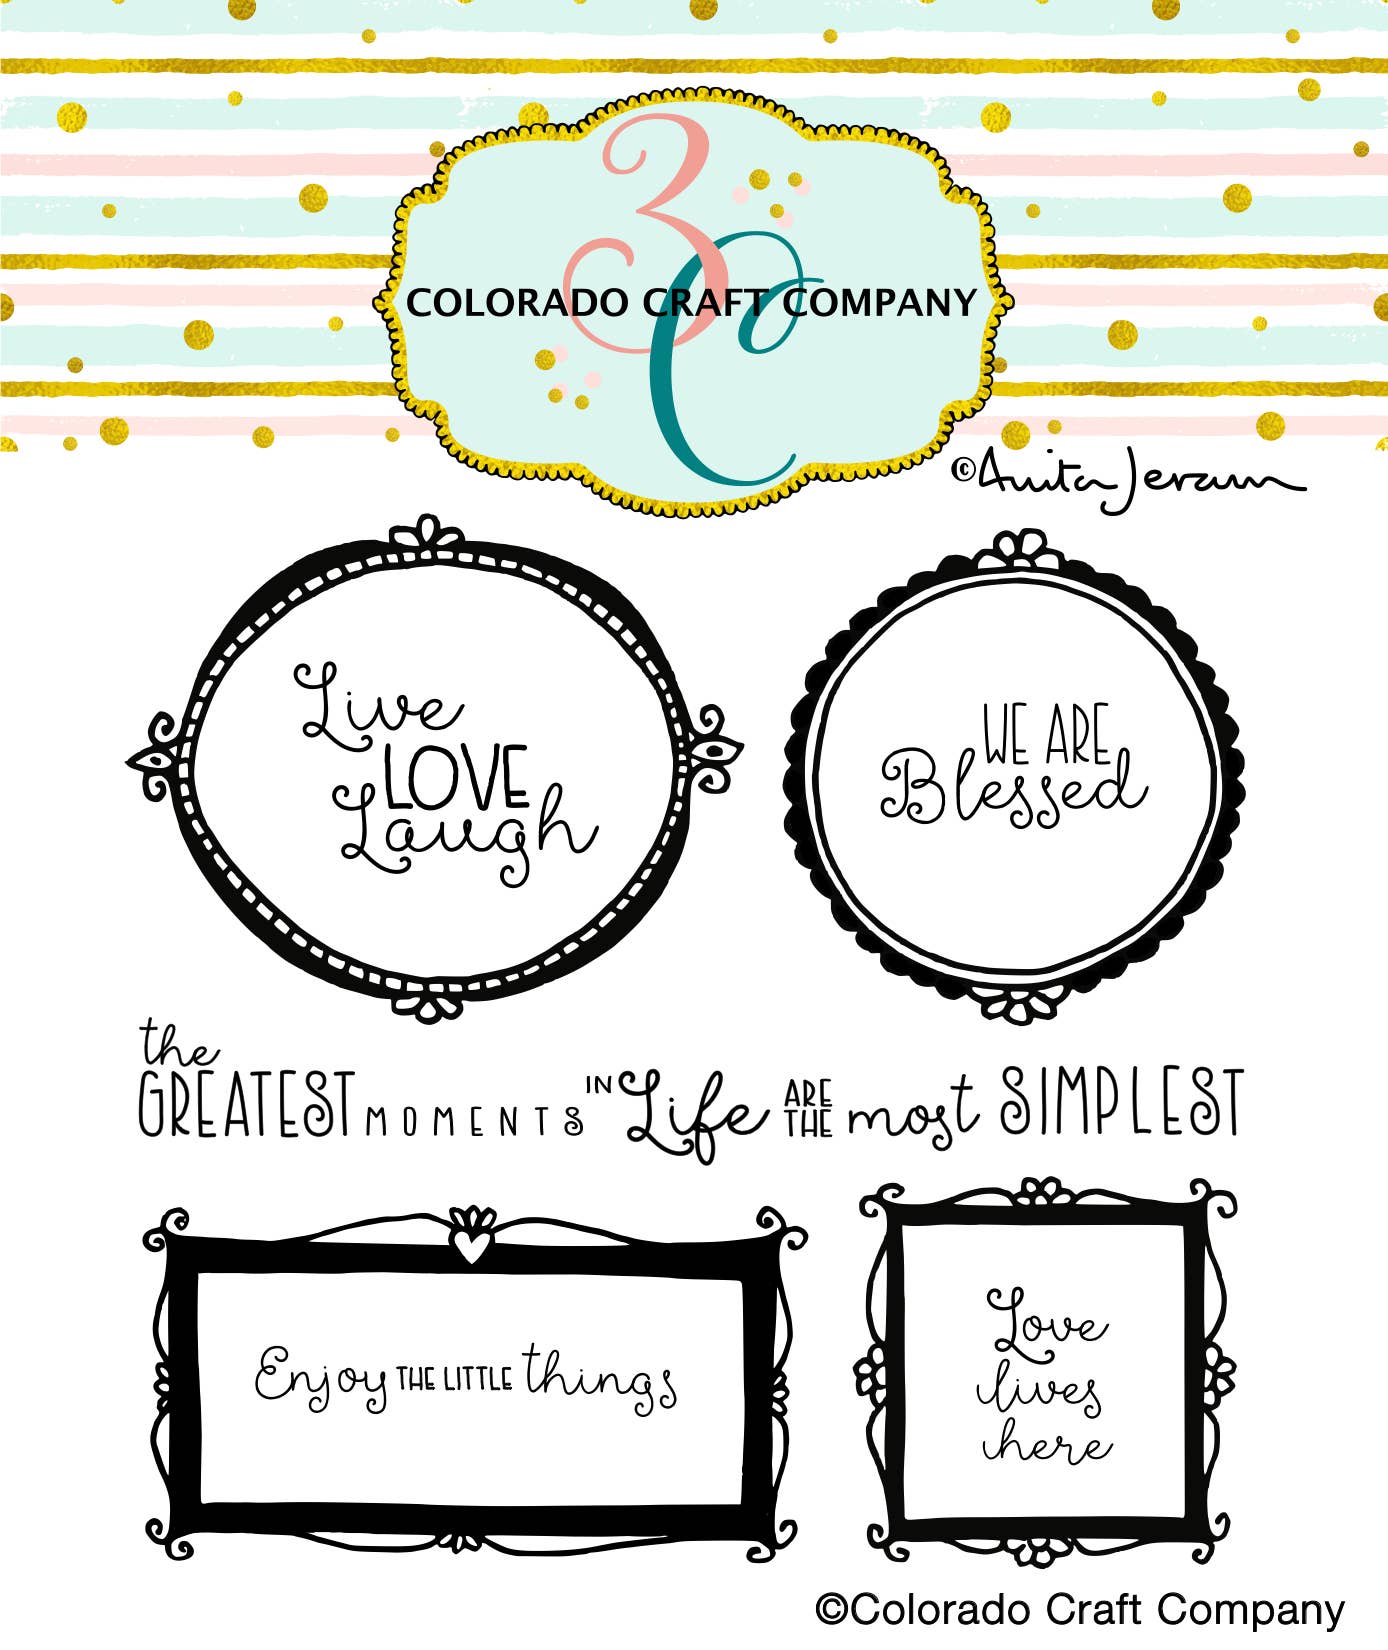 3C
COLORADO CRAFT COMPANY
©Anita Jeram
Live
LOVE
Laugh
WE ARE
Blessed
the
GREATEST MOMENTS IN Life ARE THE most SIMPLEST
Enjoy THE LITTLE things
Love
lives
here
©Colorado Craft Company